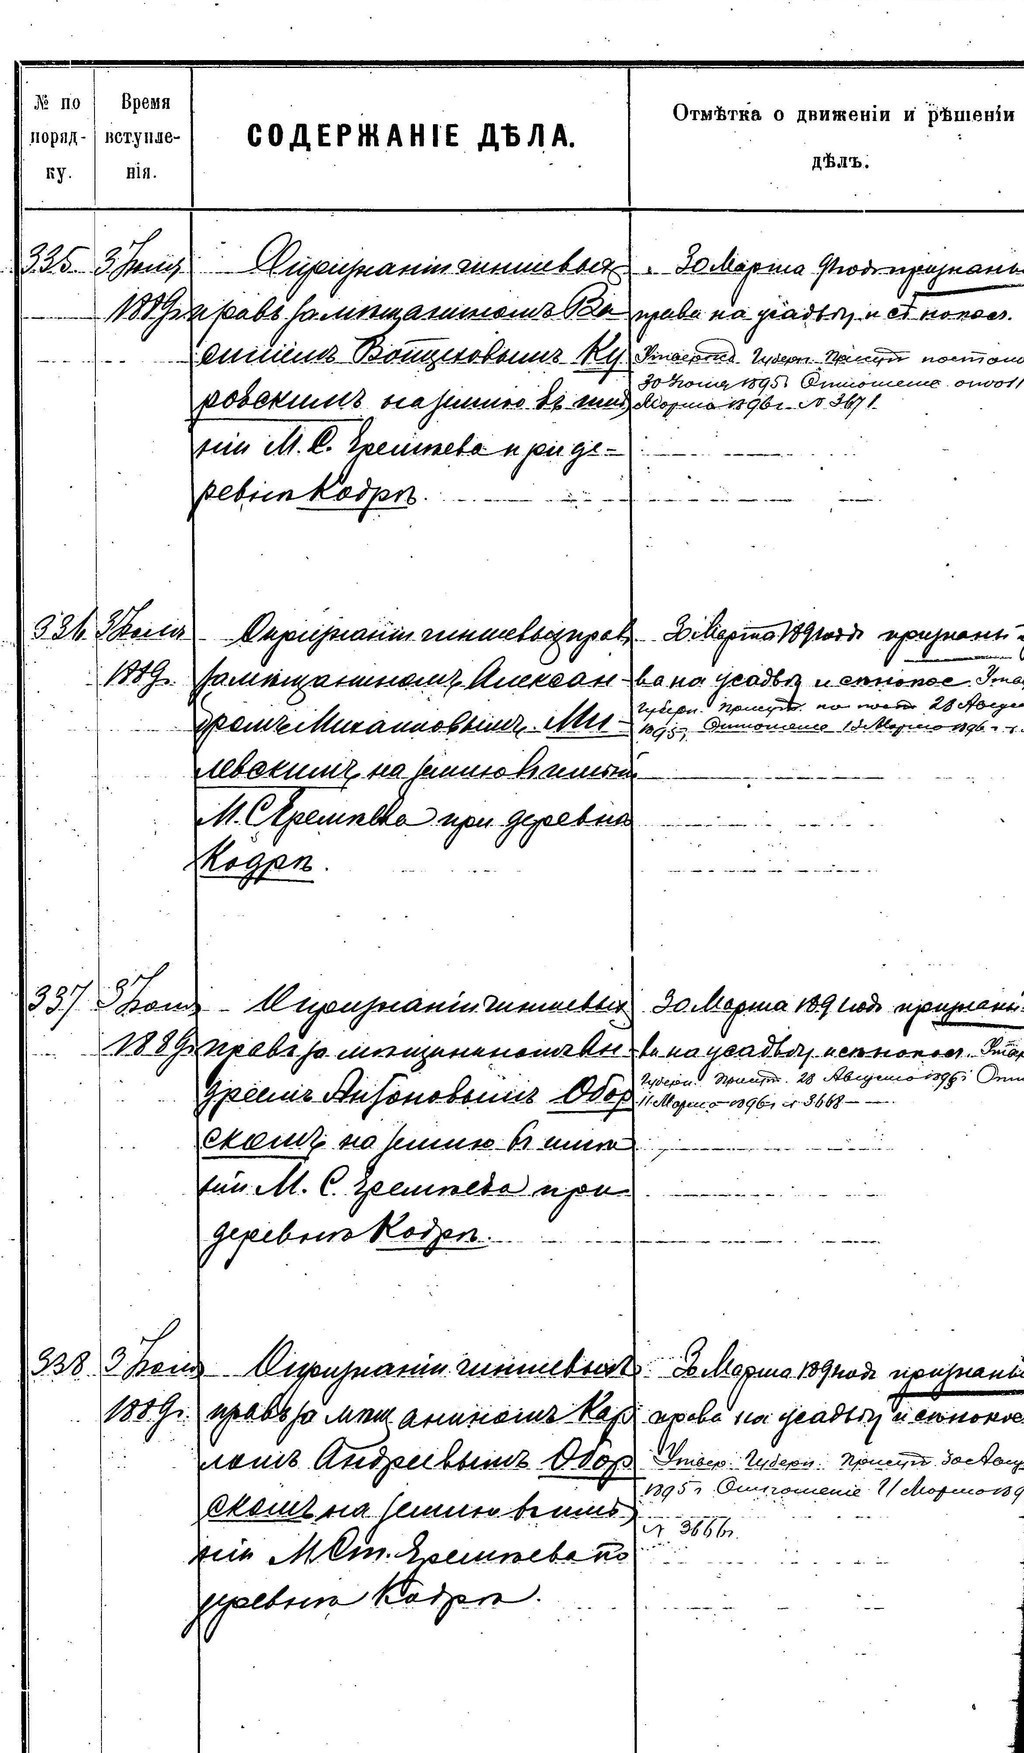 № по порядку.
Время вступленія.
СОДЕРЖАНІЕ ДѢЛА.
Отмѣтка о движеніи и рѣшеніи дѣлъ.
335. 3 Іюня
1889г.
О признаніи чиншевыхъ
правъ за мѣщаниномъ Ва
силіемъ Войцеховымъ Ку
ровскимъ на землю въ имѣ
ніи М. С. Еремѣева при де-
ревнѣ Кодрѣ.
30 Марта 91 года признаны
права на усадьбу и сѣнокос.
Утвержд. Губерн. Присут. постано
30 Іюня 1895г. Отношеніе отъ 11
Марта 1896г. № 3671.
336. 3 Іюня
1889г.
О признаніи чиншевыхъ правъ
за мѣщаниномъ Алексан-
дромъ Михайловымъ Ми-
левскимъ на землю въ имѣніи
М. С. Еремѣева при деревнѣ
Кодрѣ.
30 Марта 1891 года признаны
ва на усадьбу и сѣнокос. Утв
Губерн. Присут. по пост. 28 Август
1895г. Отношеніе 11 Марта 1896
337 3 Іюня
1889г.
О признаніи чиншевыхъ
правъ за мѣщаниномъ Ан-
дреемъ Антоновымъ Обор
скомъ на землю въ имѣ
ніи М. С. Еремѣева при
деревнѣ Кодрѣ.
30 Марта 1891 года признаны
ва на усадьбу и сѣнокос. Утв
Губерн. Присут. 28 Августа 1895г. Отно
11 Марта 1896г. № 3668
338 3 Іюня
1889г.
О признаніи чиншевыхъ
правъ за мѣщаниномъ Кар
ломъ Андреевымъ Обор
скомъ на землю въ имѣ
ніи М. Ст. Еремѣева по
деревнѣ Кодрѣ.
30 Марта 1891 года признаны
права на усадьбу и сѣнокос
Утвер. Губерн. Присут. 30 Авгу
1895г. Отношеніе 11 Марта 189
№ 3666.